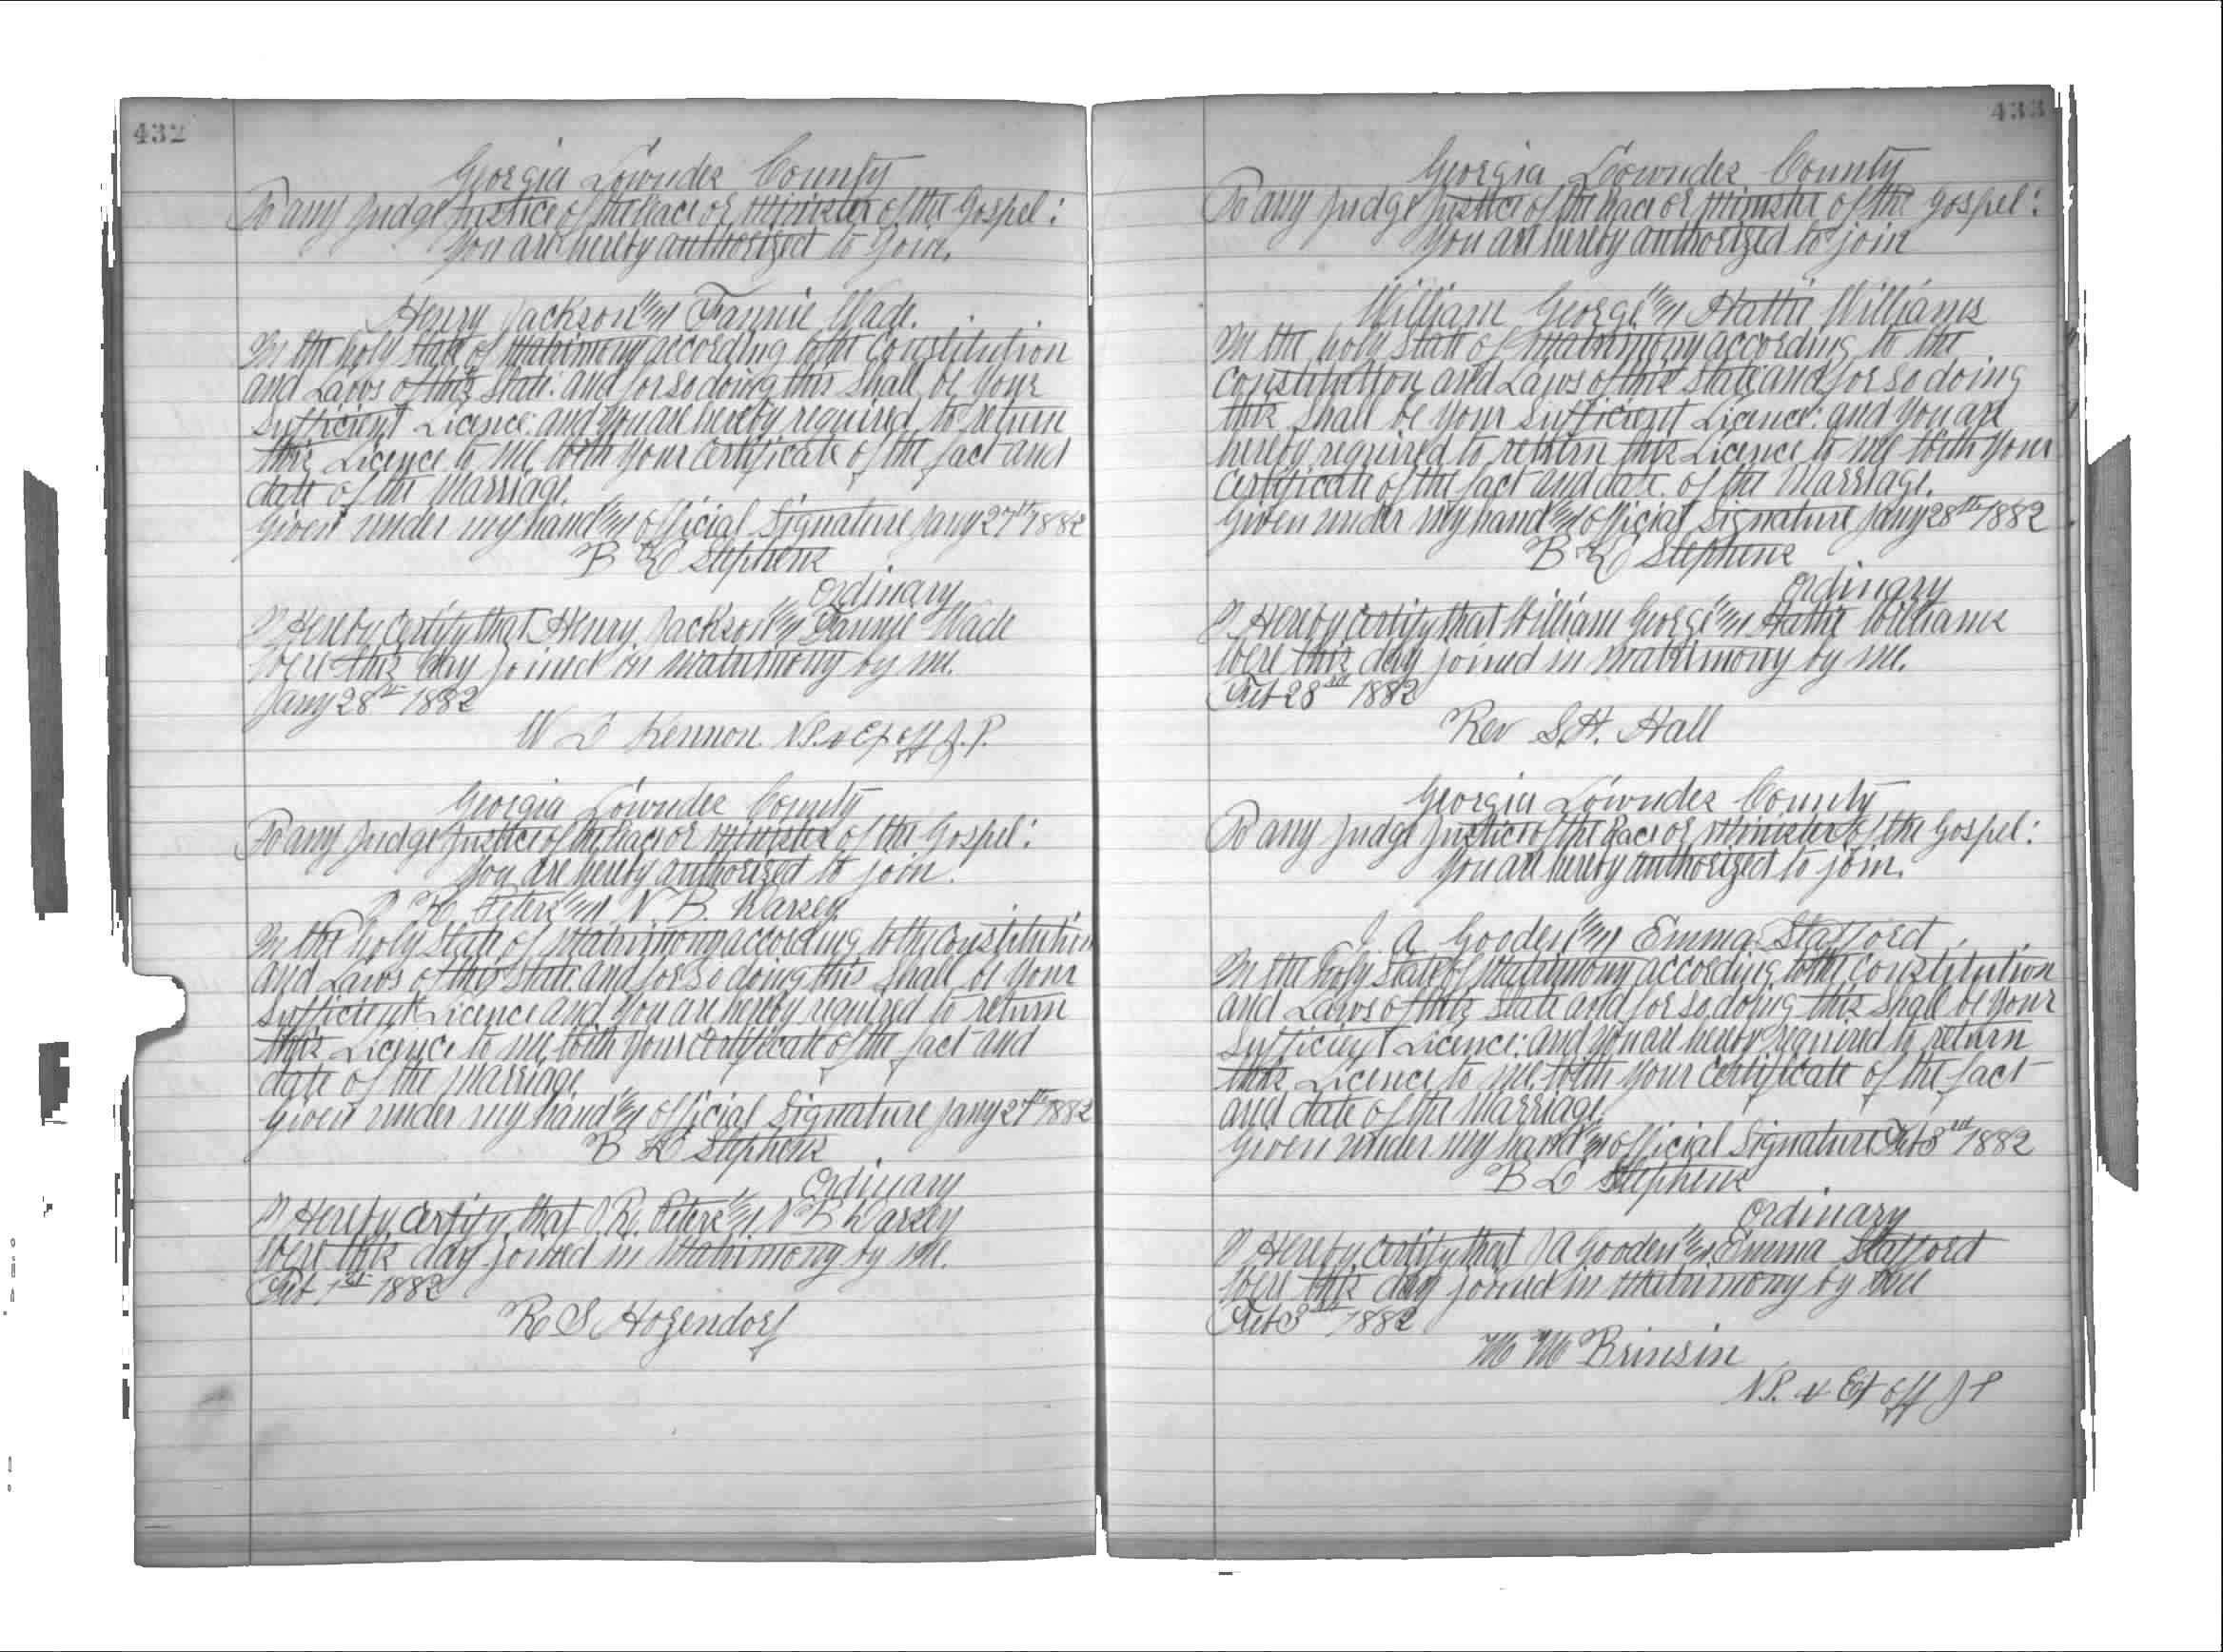 432
Georgia Lowndes County
To any Judge Justice of the Peace or Minister of the Gospel:
You are hereby authorized to Join.
Henry Jackson and Fannie Wade.
In the holy State of Matrimony according to the Constitution
and Laws of this State: and for so doing this Shall be Your
Sufficient Licence: and You are hereby required to return
this Licence to me with Your Certificate of the fact and
date of the Marriage.
Given under my hand and official Signature Jany 27th 1882
B L Stephens
Ordinary
I Hereby Certify that Henry Jackson and Fannie Wade
Were this day joined in matrimony by me.
Jany 28th 1882
W L Kennon N.P. & Ex off J.P.
Georgia Lowndes County
To any Judge Justice of the Peace or Minister of the Gospel:
You are hereby authorized to join.
R. Peters and N. B.
In the holy State of Matrimony according to the Constitution
and Laws of this State and for So doing this Shall be Your
Sufficient Licence and You are hereby required to return
this Licence to me with Your Certificate of the fact and
date of the Marriage.
Given under my hand and official Signature Jany 27th 1882
B L Stephens
Ordinary
I Hereby Certify that R. Peters and N B
Were this day joined in Matrimony by me.
Feb 1st 1882
R S Hozendorf
433
Georgia Lowndes County
To any Judge Justice of the Peace or Minister of the Gospel:
You are hereby authorized to join
William George and Hattie Williams
In the holy State of Matrimony according to the
Constitution and Laws of this State and for So doing
this Shall be Your Sufficient Licence: and You are
hereby required to return this Licence to me with Your
Certificate of the fact and date of the Marriage.
Given under my hand and official Signature Jany 28th 1882
B L Stephens
Ordinary
I Hereby Certify that William George and Hattie Williams
Were this day joined in Matrimony by me.
Feb 28th 1882
Rev S.H. Hall
Georgia Lowndes County
To any Judge Justice of the Peace or Minister of the Gospel:
You are hereby authorized to join.
J A Gooden and Emma Stafford
In the holy State of Matrimony according to the Constitution
and Laws of this State and for so doing this Shall be Your
Sufficient Licence: and You are hereby required to return
this Licence to me with Your Certificate of the fact
and date of the Marriage.
Given under my hand and official Signature Feb 3rd 1882
B L Stephens
Ordinary
I Hereby Certify that J A Gooden and Emma Stafford
Were this day joined in Matrimony by me
Feb 3rd 1882
M M Brinsin
N.P. & Ex off J P